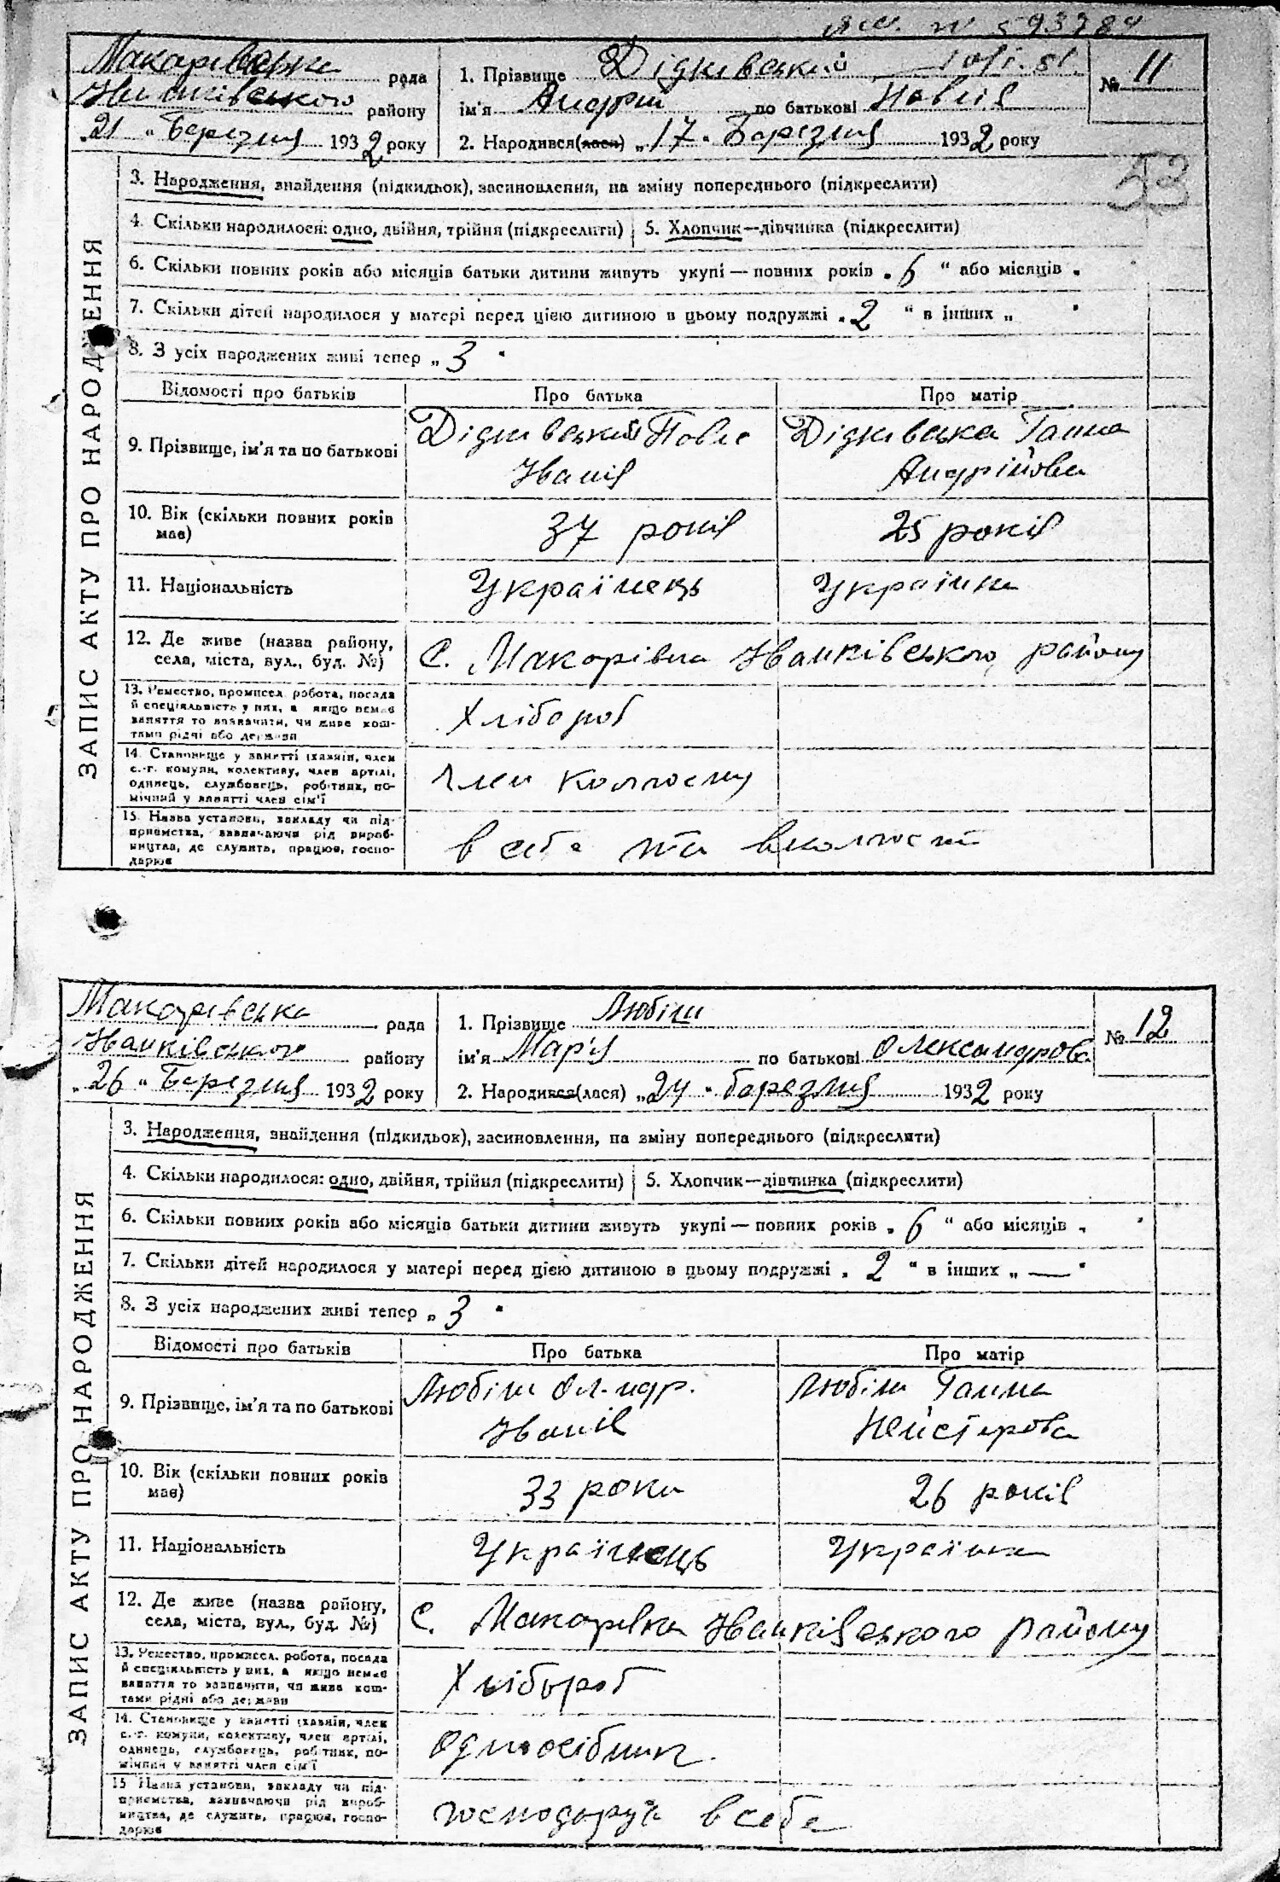 593784
Макарівська рада
Іванківського району
„21 „ Березня 1932 року
1. Прізвище Дідківський
ім'я Андрій по батькові Павлів
2. Народився(лася) „17 „ Березня 1932 року
№ 11
53
ЗАПИС АКТУ ПРО НАРОДЖЕННЯ
3. Народження, знайдення (підкидьок), засиновлення, на зміну попереднього (підкреслити)
4. Скільки народилося: одно, двійня, трійня (підкреслити) 5. Хлопчик—дівчинка (підкреслити)
6. Скільки повних років або місяців батьки дитини живуть укупі — повних років „ 6 “ або місяців „
7. Скільки дітей народилося у матері перед цією дитиною в цьому подружжі „ 2 “ в інших „ “
8. З усіх народжених живі тепер „ 3 “
Відомості про батьків Про батька Про матір
9. Прізвище, ім'я та по батькові Дідківський Павло Дідківська Ганна
Іванів Андрійова
10. Вік (скільки повних років має) 37 років 25 років
11. Національність Українець Українка
12. Де живе (назва району, села, міста, вул., буд. №) С. Макарівка Іванківського району
13. Ремество, промисел, робота, посада й спеціяльність у них, а якщо немає заняття то зазначити, чи живе коштами рідні або держави Хлібороб
14. Становище у занятті (хазяїн, член с.-г. комуни, колективу, член артілі, одинець, службовець, робітник, помічний у занятті член сім'ї Член колгоспу
15. Назва установи, закладу чи підприємства, зазначаючи рід виробництва, де служить, працює, господарює в себе та вколгоспі
Макарівська рада
Іванківського району
„26 „ Березня 1932 року
1. Прізвище Любіш
ім'я Мар'я по батькові Олександрова
2. Народився(лася) „24 „ березня 1932 року
№ 12
ЗАПИС АКТУ ПРО НАРОДЖЕННЯ
3. Народження, знайдення (підкидьок), засиновлення, на зміну попереднього (підкреслити)
4. Скільки народилося: одно, двійня, трійня (підкреслити) 5. Хлопчик—дівчинка (підкреслити)
6. Скільки повних років або місяців батьки дитини живуть укупі — повних років „ 6 “ або місяців „ “
7. Скільки дітей народилося у матері перед цією дитиною в цьому подружжі „ 2 “ в інших „ — “
8. З усіх народжених живі тепер „ 3 “
Відомості про батьків Про батька Про матір
9. Прізвище, ім'я та по батькові Любіш Ол-ндр. Любіш Ганна
Іванів Нейстерова
10. Вік (скільки повних років має) 33 роки 26 років
11. Національність Українець Українка
12. Де живе (назва району, села, міста, вул., буд. №) С. Макарівка Іванківського району
13. Ремество, промисел, робота, посада й спеціяльність у них, а якщо немає заняття то зазначити, чи живе коштами рідні або держави Хлібороб
14. Становище у занятті (хазяїн, член с.-г. комуни, колективу, член артілі, одинець, службовець, робітник, помічний у занятті член сім'ї одноосібник.
15. Назва установи, закладу чи підприємства, зазначаючи рід виробництва, де служить, працює, господарює господарує в себе